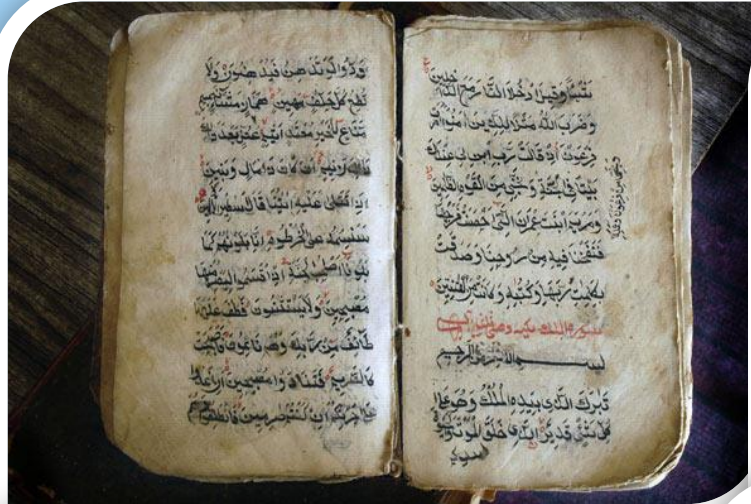 شيئا وقيل ادخلا النار مع الدخلين
وضرب الله مثلا للذين امنوا امرات
فرعون اذ قالت رب ابن لي عندك
بيتا في الجنة ونجني من القوم الظلمين
ونجني من فرعون وعمله
ومريم ابنت عمرن التي احصنت فرجها
فنفخنا فيه من روحنا وصدقت
بكلمت ربها وكتبه وكانت من القنتين
سورة الملك مكية وهي
بسم الله الرحمن الرحيم
تبرك الذي بيده الملك وهو على
كل شئ قدير الذي خلق الموت و
ودوا لو تدهن فيدهنون ولا
تطع كل حلاف مهين هماز مشاء بنميم
مناع للخير معتد اثيم عتل بعد ذلك
زنيم ان كان ذا مال وبنين
اذا تتلى عليه ايتنا قال اسطير الاولين
سنسمه على الخرطوم انا بلونهم كما
بلونا اصحب الجنة اذ اقسموا ليصرمنها
مصبحين ولا يستثنون فطاف عليها
طائف من ربك وهم نائمون فاصبحت
كالصريم فتنادوا مصبحين ان اغدوا
على حرثكم ان كنتم صرمين فانطلقوا